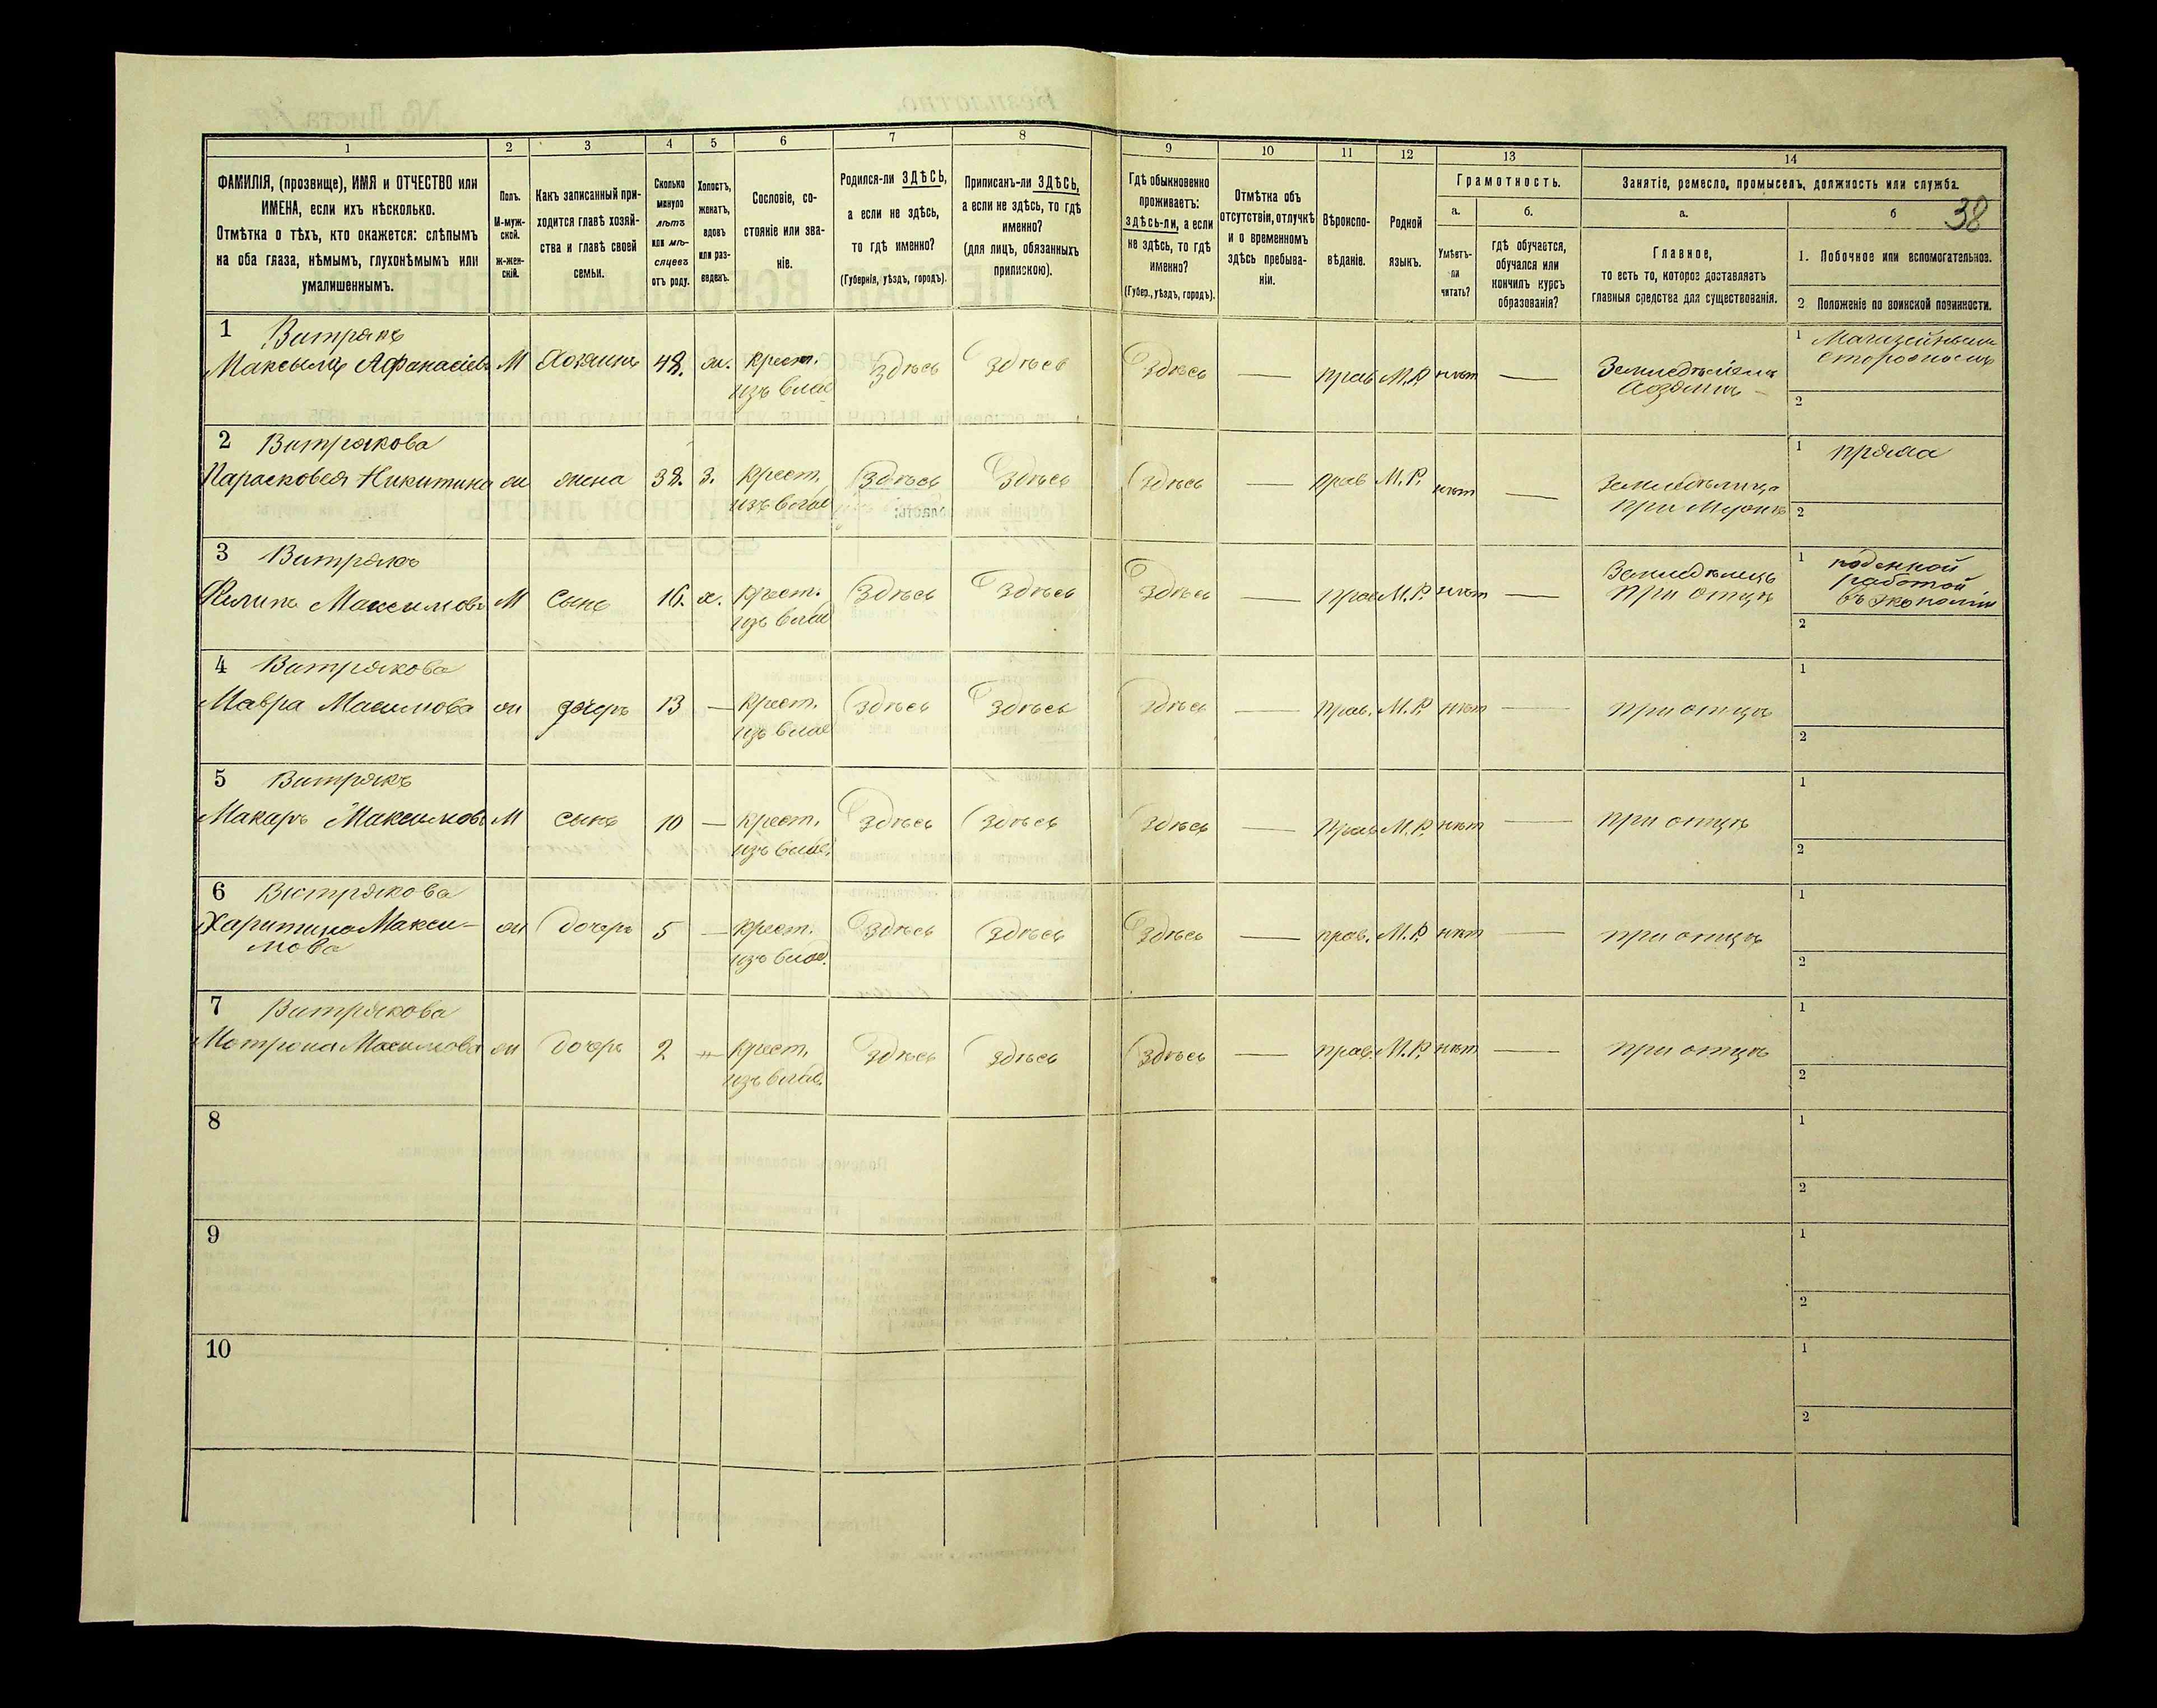 38
1
2
3
4
5
6
7
8
9
10
11
12
13
14
ФАМИЛІЯ, (прозвище), ИМЯ и ОТЧЕСТВО или
ИМЕНА, если ихъ нѣсколько.
Отмѣтка о тѣхъ, кто окажется: слѣпымъ
на оба глаза, нѣмымъ, глухонѣмымъ или
умалишеннымъ.
Полъ.
М-муж-
ской.
ж-жен-
скій.
Какъ записанный при-
ходится главѣ хозяй-
ства и главѣ своей
семьи.
Сколько
минуло
лѣтъ
или мѣ-
сяцевъ
отъ роду.
Холостъ,
женатъ,
вдовъ
или раз-
веденъ.
Сословіе, со-
стояніе или зва-
ніе.
Родился-ли ЗДѢСЬ,
а если не здѣсь,
то гдѣ именно?
(Губернія, уѣздъ, городъ).
Приписанъ-ли ЗДѢСЬ,
а если не здѣсь, то гдѣ
именно?
(для лицъ, обязанныхъ
припискою).
Гдѣ обыкновенно
проживаетъ:
здѣсь-ли, а если
не здѣсь, то гдѣ
именно?
(Губер., уѣздъ, городъ).
Отмѣтка объ
отсутствіи, отлучкѣ
и о временномъ
здѣсь пребыва-
ніи.
Вѣроиспо-
вѣданіе.
Родной
языкъ.
Грамотность.
а.
Умѣетъ-
ли
читать?
б.
гдѣ обучается,
обучался или
кончилъ курсъ
образованія?
Занятіе, ремесло, промыселъ, должность или служба.
а.
Главное,
то есть то, которое доставляетъ
главныя средства для существованія.
б
1. Побочное или вспомогательное.
2 Положеніе по воинской повинности.
1 Витрякъ
Максымъ Афанасіевъ М Хозяинъ 48. ж. крест. здѣсь здѣсь здѣсь — прав М.Р. нѣтъ —
изъ влад
Хозяинъ
1
2
2 Витрякова
Парасковея Никитина ж жена 38. З. крест. здѣсь здѣсь здѣсь — прав М.Р. нѣтъ — Земледѣлица
изъ влад при мужѣ
1 пряха
2
3 Витрякъ
Филипъ Максимовъ М сынъ 16. х. крест. здѣсь здѣсь здѣсь — прав М.Р. нѣтъ — Земледѣлецъ
изъ влад при отцѣ
1 поденной
работой
въ экономіи
2
4 Витрякова
Мавра Масимова ж дочерь 13 — крест. здѣсь здѣсь здѣсь — прав. М.Р. нѣтъ — при отцѣ
изъ влад
1
2
5 Витрякъ
Макаръ Максимовъ М сынъ 10 — крест. здѣсь здѣсь здѣсь — прав М.Р. нѣтъ — при отцѣ
изъ влад.
1
2
6 Витрякова
Харитина Макси- ж дочерь 5 — крест. здѣсь здѣсь здѣсь — прав. М.Р. нѣтъ — при отцѣ
мова изъ влад.
1
2
7 Витрякова
Мотрона Масимова ж дочерь 2 — крест. здѣсь здѣсь здѣсь — прав. М.Р. нѣтъ — при отцѣ
изъ влад.
1
2
8
1
2
9
1
2
10
1
2